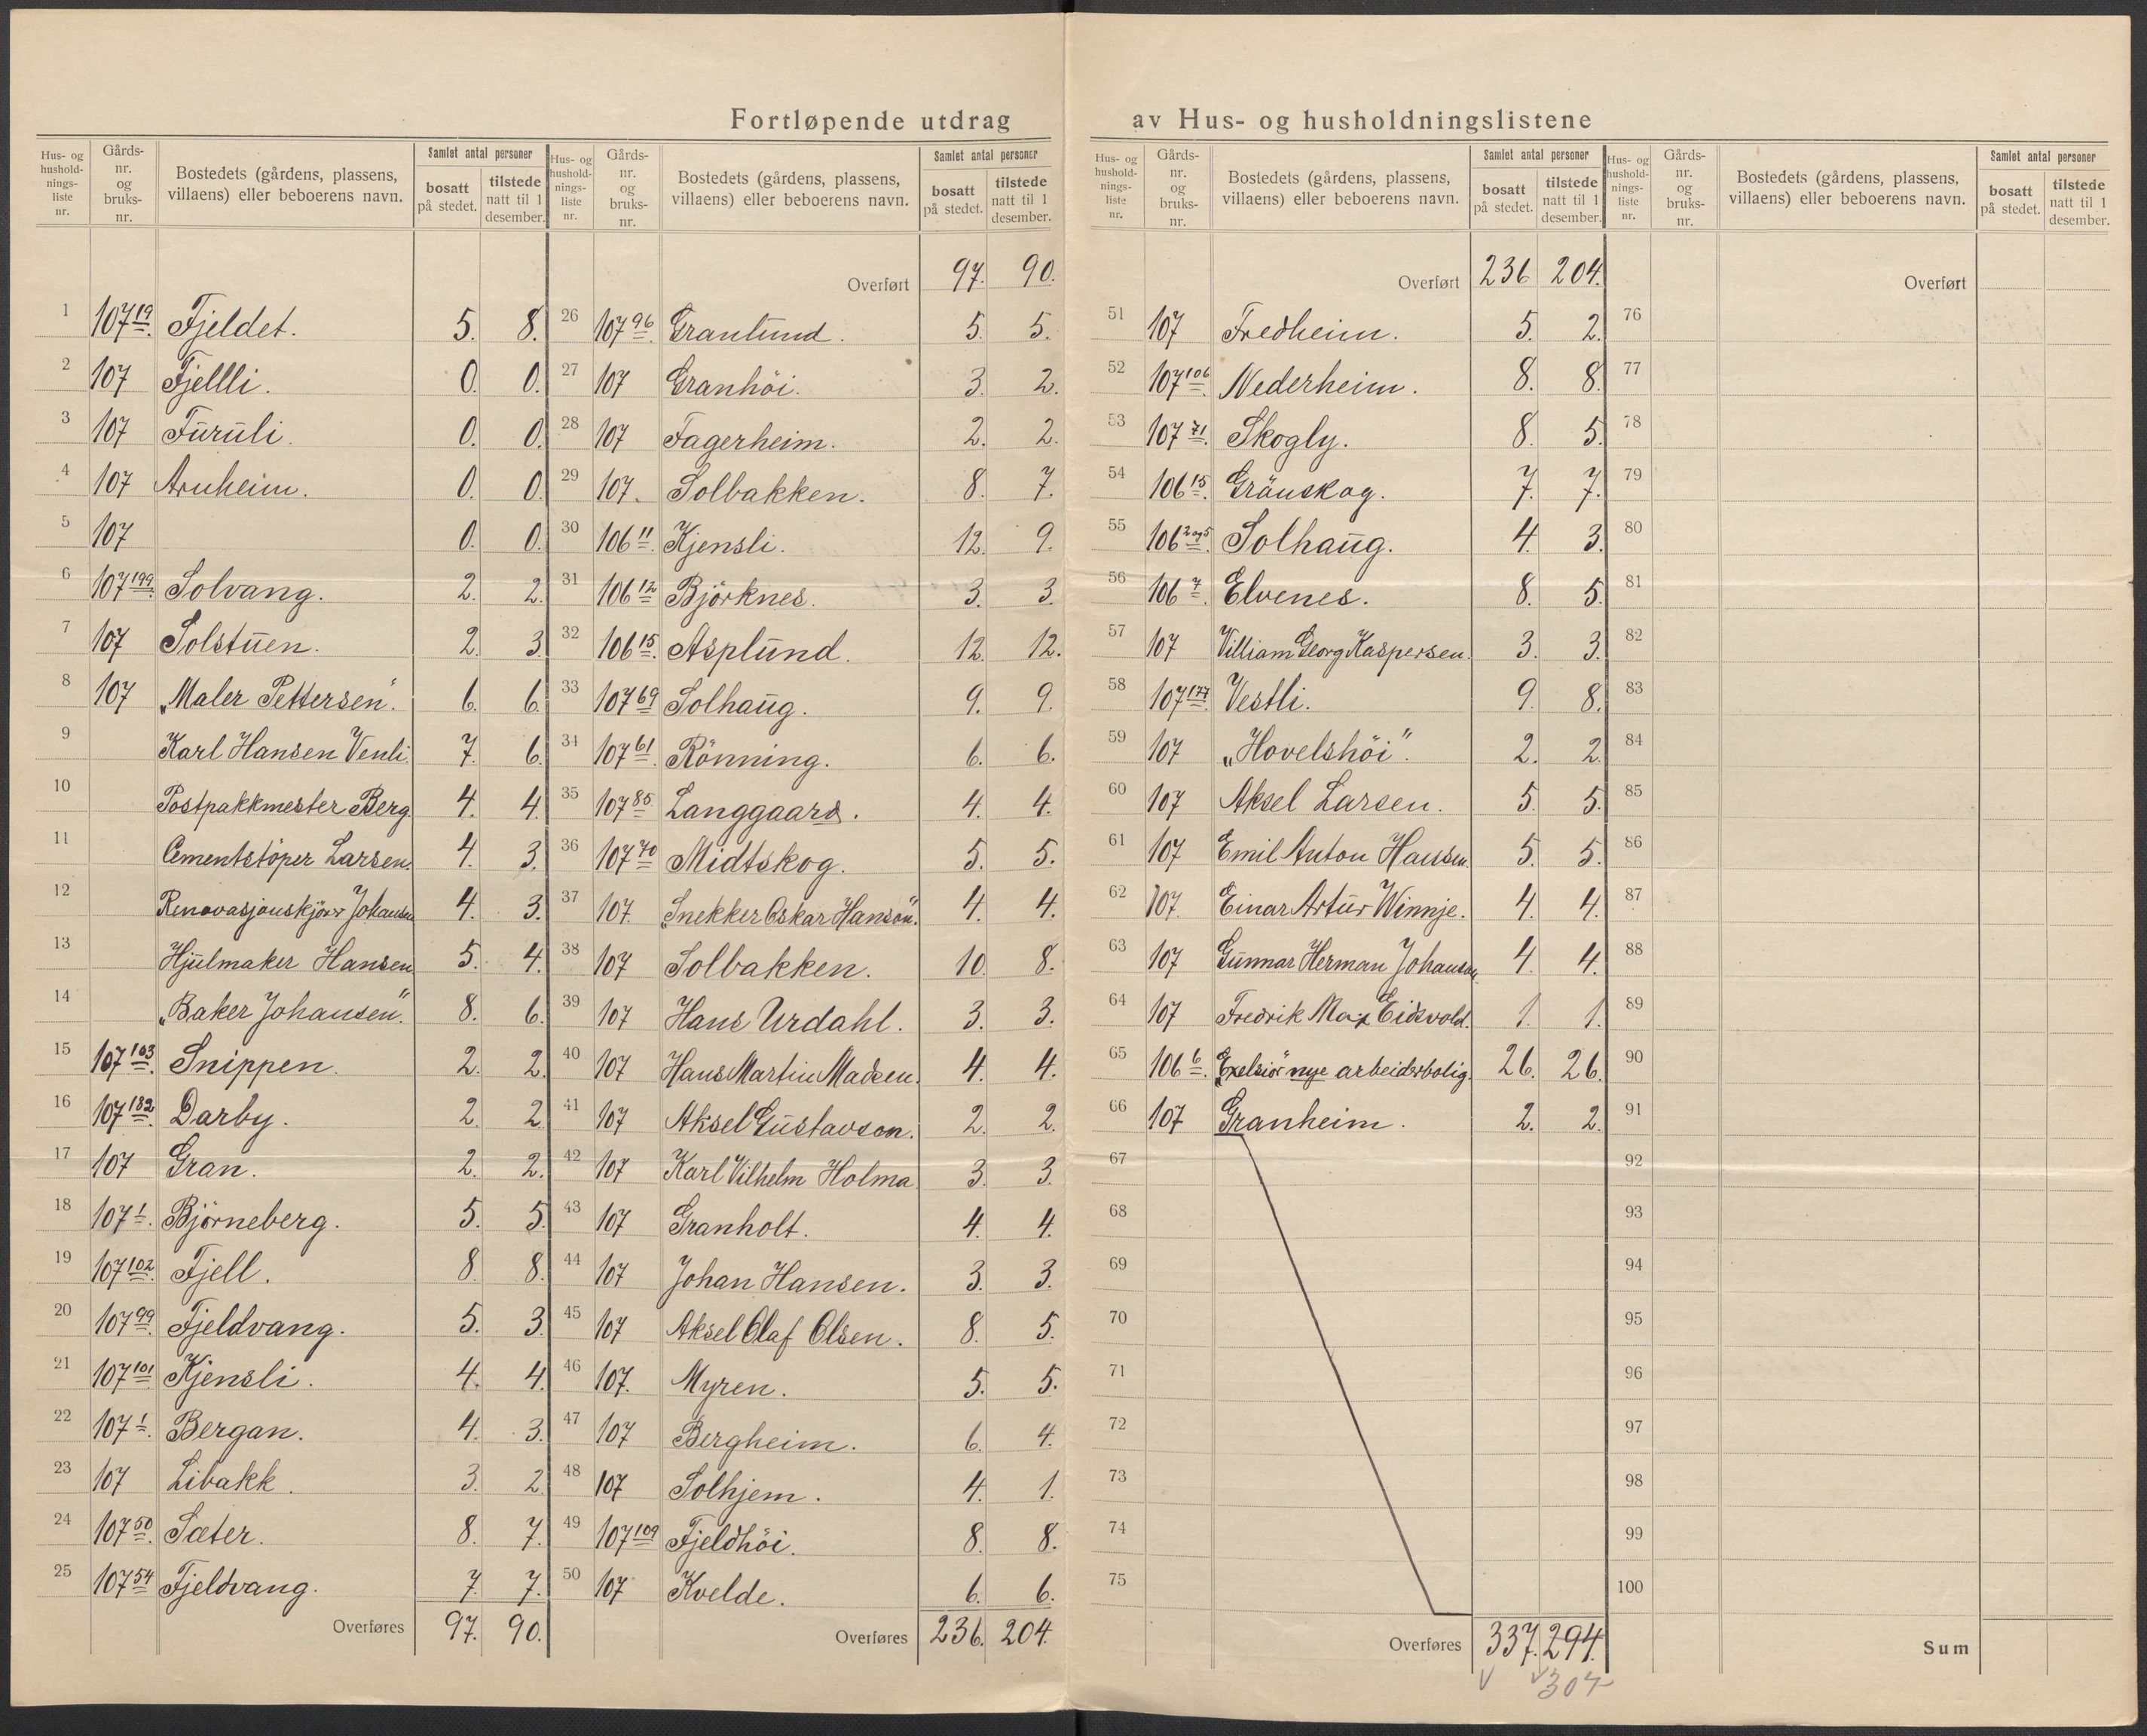 Fortløpende utdrag av Hus- og husholdningslistene
Hus- og hushold-nings-liste nr. | Gårds-nr. og bruks-nr. | Bostedets (gårdens, plassens, villaens) eller beboerens navn. | Samlet antal personer | bosatt på stedet. | tilstede natt til 1 desember.
1 107 19. Fjeldet. 5. 8.
2 107 Fjellli. 0. 0.
3 107 Furuli. 0. 0.
4 107 Arnheim. 0. 0.
5 107 0. 0.
6 107 199. Solvang. 2. 2.
7 107 Solstuen. 2. 3.
8 107 „Maler Pettersen“. 6. 6.
9 Karl Hansen Venli. 7. 6.
10 Postpakkmester Berg. 4. 4.
11 Cementstöper Larsen. 4. 3.
12 Renovasjonskjörer Johansen 4. 3.
13 Hjulmaker Hansen 5. 4.
14 „Baker Johansen“. 8. 6.
15 107 103. Snippen. 2. 2.
16 107 182. Darby. 2. 2.
17 107 Gran. 2. 2.
18 107 1. Björneberg. 5. 5.
19 107 102. Fjell. 8. 8.
20 107 99. Fjeldvang. 5. 3.
21 107 101 Kjensli. 4. 4.
22 107 1. Bergan. 4. 3.
23 107 Libakk. 3. 2.
24 107 50. Sæter. 8. 7.
25 107 54 Fjeldvang. 7. 7.
Overføres 97. 90.
Hus- og hushold-nings-liste nr. | Gårds-nr. og bruks-nr. | Bostedets (gårdens, plassens, villaens) eller beboerens navn. | Samlet antal personer | bosatt på stedet. | tilstede natt til 1 desember.
Overført 97. 90.
26 107 96. Granlund. 5. 5.
27 107 Granhöi. 3. 2.
28 107 Fagerheim. 2. 2.
29 107. Solbakken. 8. 7.
30 106 11. Kjensli. 12. 9.
31 106 12 Björknes. 3. 3.
32 106 15. Asplund. 12. 12.
33 107 69 Solhaug. 9. 9.
34 107 61 Rönning. 6. 6.
35 107 85 Langgaard. 4. 4.
36 107 70 Midtskog. 5. 5.
37 107. „Snekker Oskar Hanson“. 4. 4.
38 107 Solbakken. 10. 8.
39 107 Hans Urdahl. 3. 3.
40 107 Hans Martin Madsen. 4. 4.
41 107 Aksel Gustavson. 2. 2.
42 107 Karl Vilhelm Holma 3. 3.
43 107 Granholt. 4. 4.
44 107 Johan Hansen. 3. 3.
45 107 Aksel Olaf Olsen. 8. 5.
46 107. Myren. 5. 5.
47 107 Bergheim. 6. 4.
48 107 Solhjem. 4. 1.
49 107 109 Fjeldhöi. 8. 8.
50 107 Kvelde. 6. 6.
Overføres 236. 204.
Hus- og hushold-nings-liste nr. | Gårds-nr. og bruks-nr. | Bostedets (gårdens, plassens, villaens) eller beboerens navn. | Samlet antal personer | bosatt på stedet. | tilstede natt til 1 desember.
Overført 236 204.
51 107 Fredheim. 5. 2.
52 107 106 Nederheim. 8. 8.
53 107 71. Skogly. 8. 5.
54 106 15. Gränskog. 7. 7.
55 106 2 og 5 Solhaug. 4. 3.
56 106 7. Elvenes. 8. 5.
57 107 Villiam Georg Kaspersen. 3. 3.
58 107 177. Vestli. 9. 8.
59 107 „Hovelshöi“. 2. 2.
60 107 Aksel Larsen. 5. 5.
61 107 Emil Anton Hansen. 5. 5.
62 107. Einar Artur Winnje. 4. 4.
63 107 Gunnar Herman Johanson 4. 4.
64 107 Fredrik Max Eidsvold. 1. 1.
65 106 6. „Exelsiör“ nye arbeiderbolig. 26. 26.
66 107 Granheim. 2. 2.
67
68
69
70
71
72
73
74
75
Overføres 337. 294.
304
Hus- og hushold-nings-liste nr. | Gårds-nr. og bruks-nr. | Bostedets (gårdens, plassens, villaens) eller beboerens navn. | Samlet antal personer | bosatt på stedet. | tilstede natt til 1 desember.
Overført
76
77
78
79
80
81
82
83
84
85
86
87
88
89
90
91
92
93
94
95
96
97
98
99
100
Sum